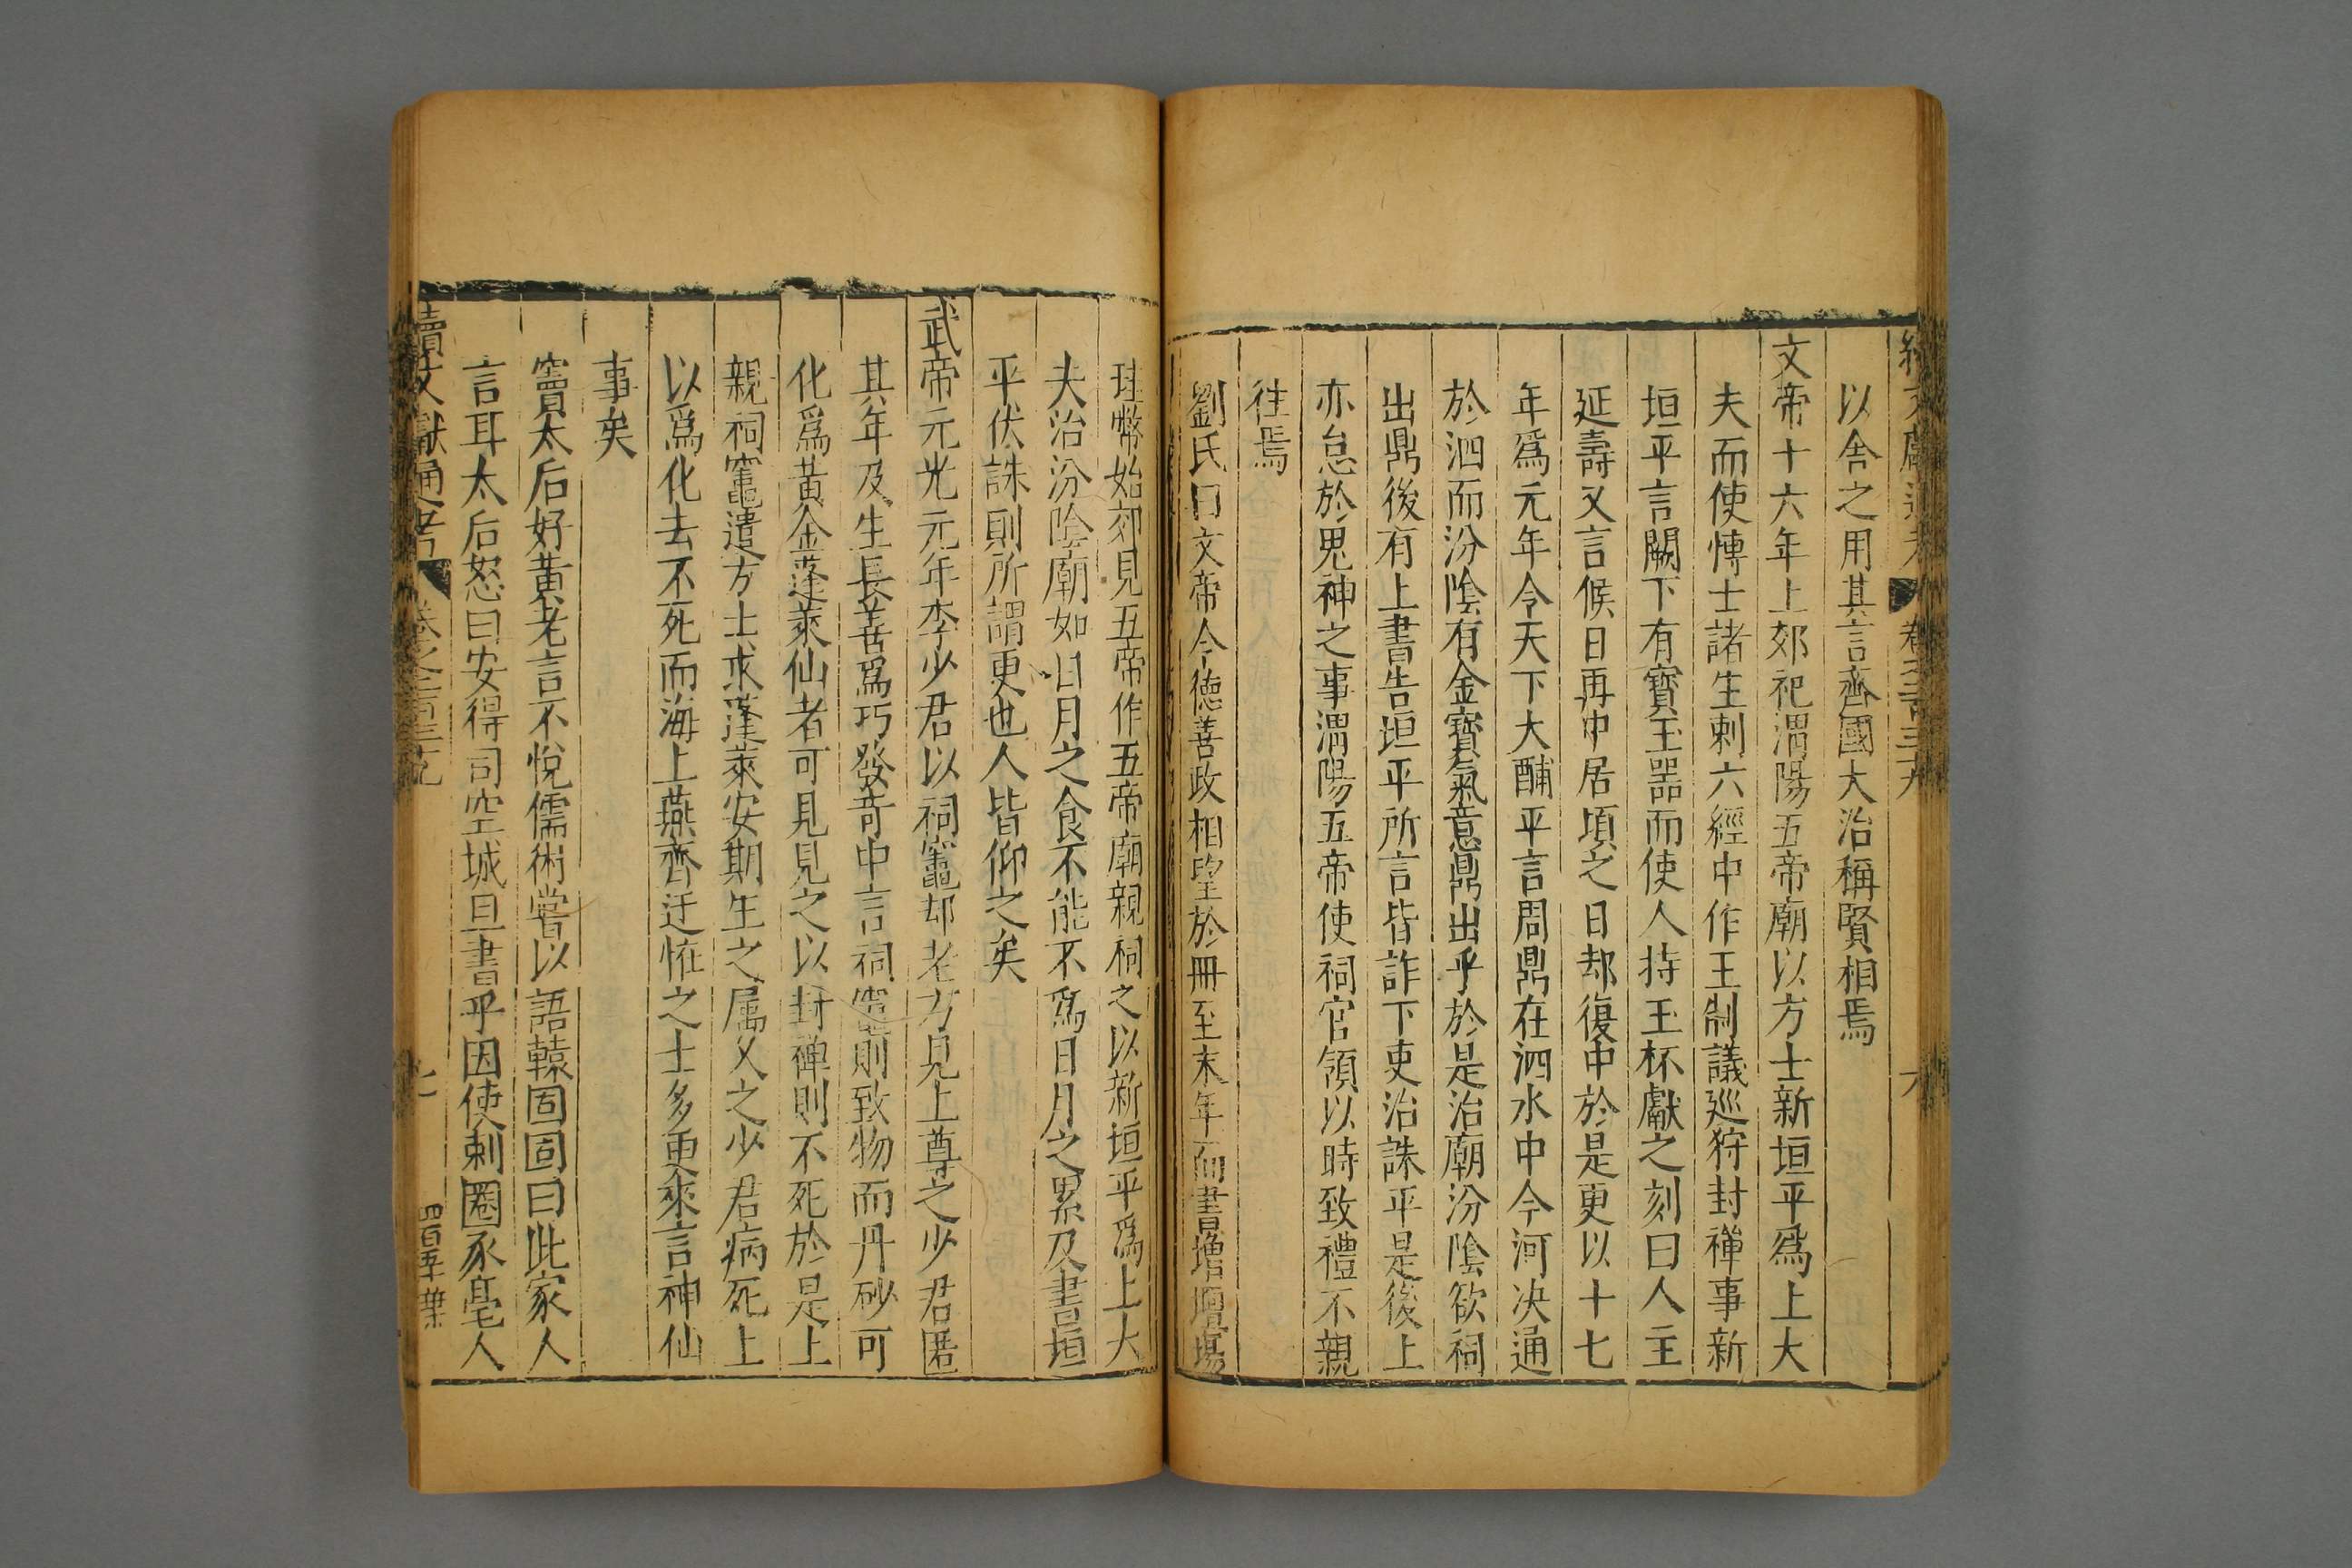 以舍之用其言齊國大治稱賢相焉
文帝十六年上郊祀渭陽五帝廟以方士新垣平爲上大
夫而使博士諸生刺六經中作王制議巡狩封禪事新
垣平言闕下有寶玉噐而使人持玉杯獻之刻曰人主
延壽又言候日再中居頃之日却復中於是更以十七
年爲元年令天下大酺平言周鼎在泗水中今河决通
於泗而汾陰有金寶氣意鼎出乎於是治廟汾陰欲祠
出鼎後有上書告垣平所言皆詐下吏治誅平是後上
亦怠於鬼神之事渭陽五帝使祠官領以時致禮不親
往焉
劉氏曰文帝令德善政相望於冊至末年而書增壇場
珪幣始郊見五帝作五帝廟親祠之以新垣平爲上大
夫治汾陰廟如日月之食不能不爲日月之累及書垣
平伏誅則所謂更也人皆仰之矣
武帝元光元年李少君以祠竈却老方見上尊之少君匿
其年及生長善爲巧發奇中言祠竈則致物而丹砂可
化爲黃金蓬萊仙者可見見之以封禪則不死於是上
親祠竈遣方士求蓬萊安期生之属乆之少君病死上
以爲化去不死而海上燕齊迂恠之士多更來言神仙
事矣
竇太后好黃老言不悅儒術嘗以語轅固固曰此家人
言耳太后怒曰安得司空城旦書乎因使刺圈豕亳人
續文獻通考 卷之二百三九 七